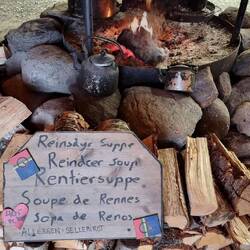 Reinsdyr suppe
Reindeer soup
Rentiersuppe
Soupe de Rennes
Sopa de Renos
ALLERGEN: SELLERIROT